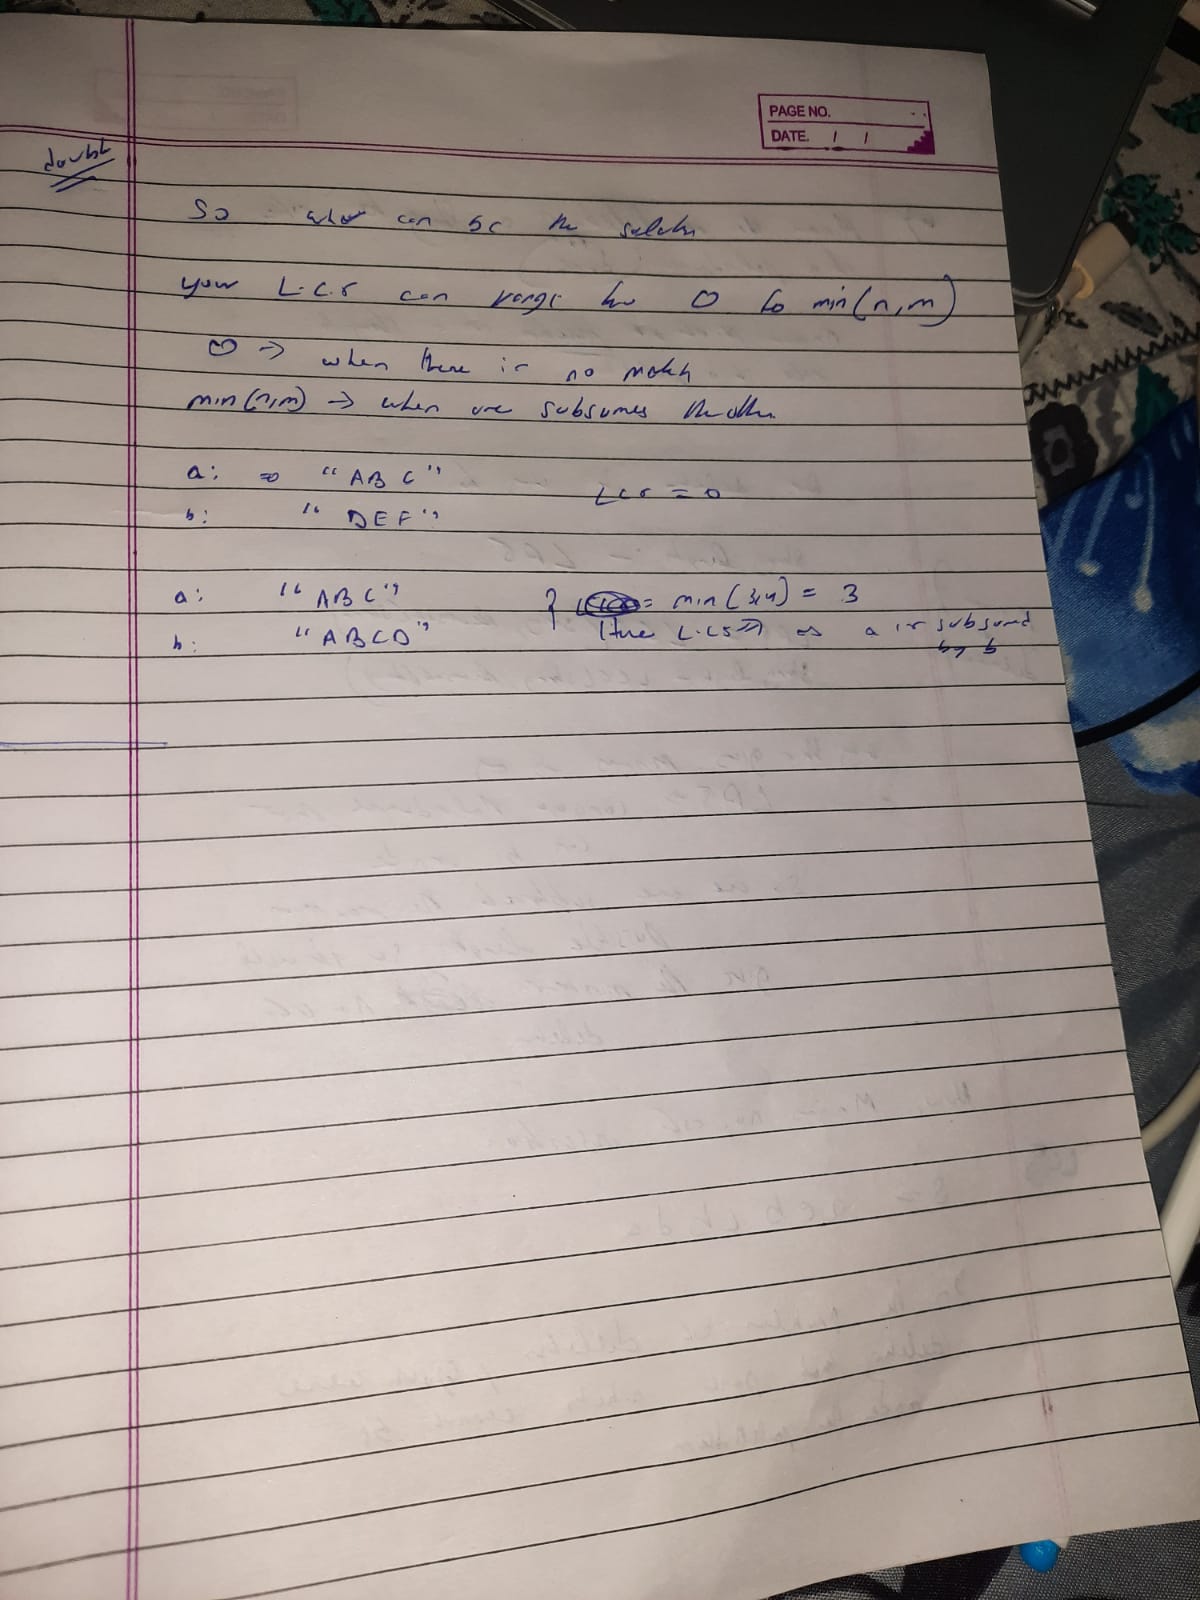 PAGE NO.
DATE. / /
doubt
So what can be the solution
your L.C.S can range from 0 to min(n,m)
0 → when there is no match
min(n,m) → when one subsumes the other
a: ⇒ "ABC"
LCS = 0
b: "DEF"
a: "ABC"
} = min(3,4) = 3
b: "ABCD"
(the L.CS as a is subsumed
by b